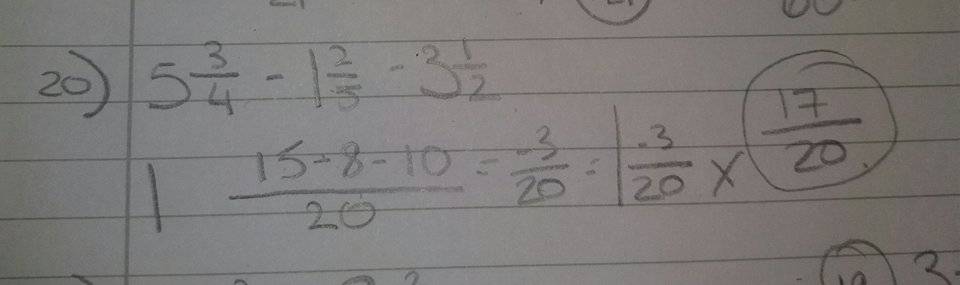 20) 5 3/4 - 1 2/5 - 3 1/2
1 15-8-10/20 = -3/20 = 1 -3/20 x 17/20